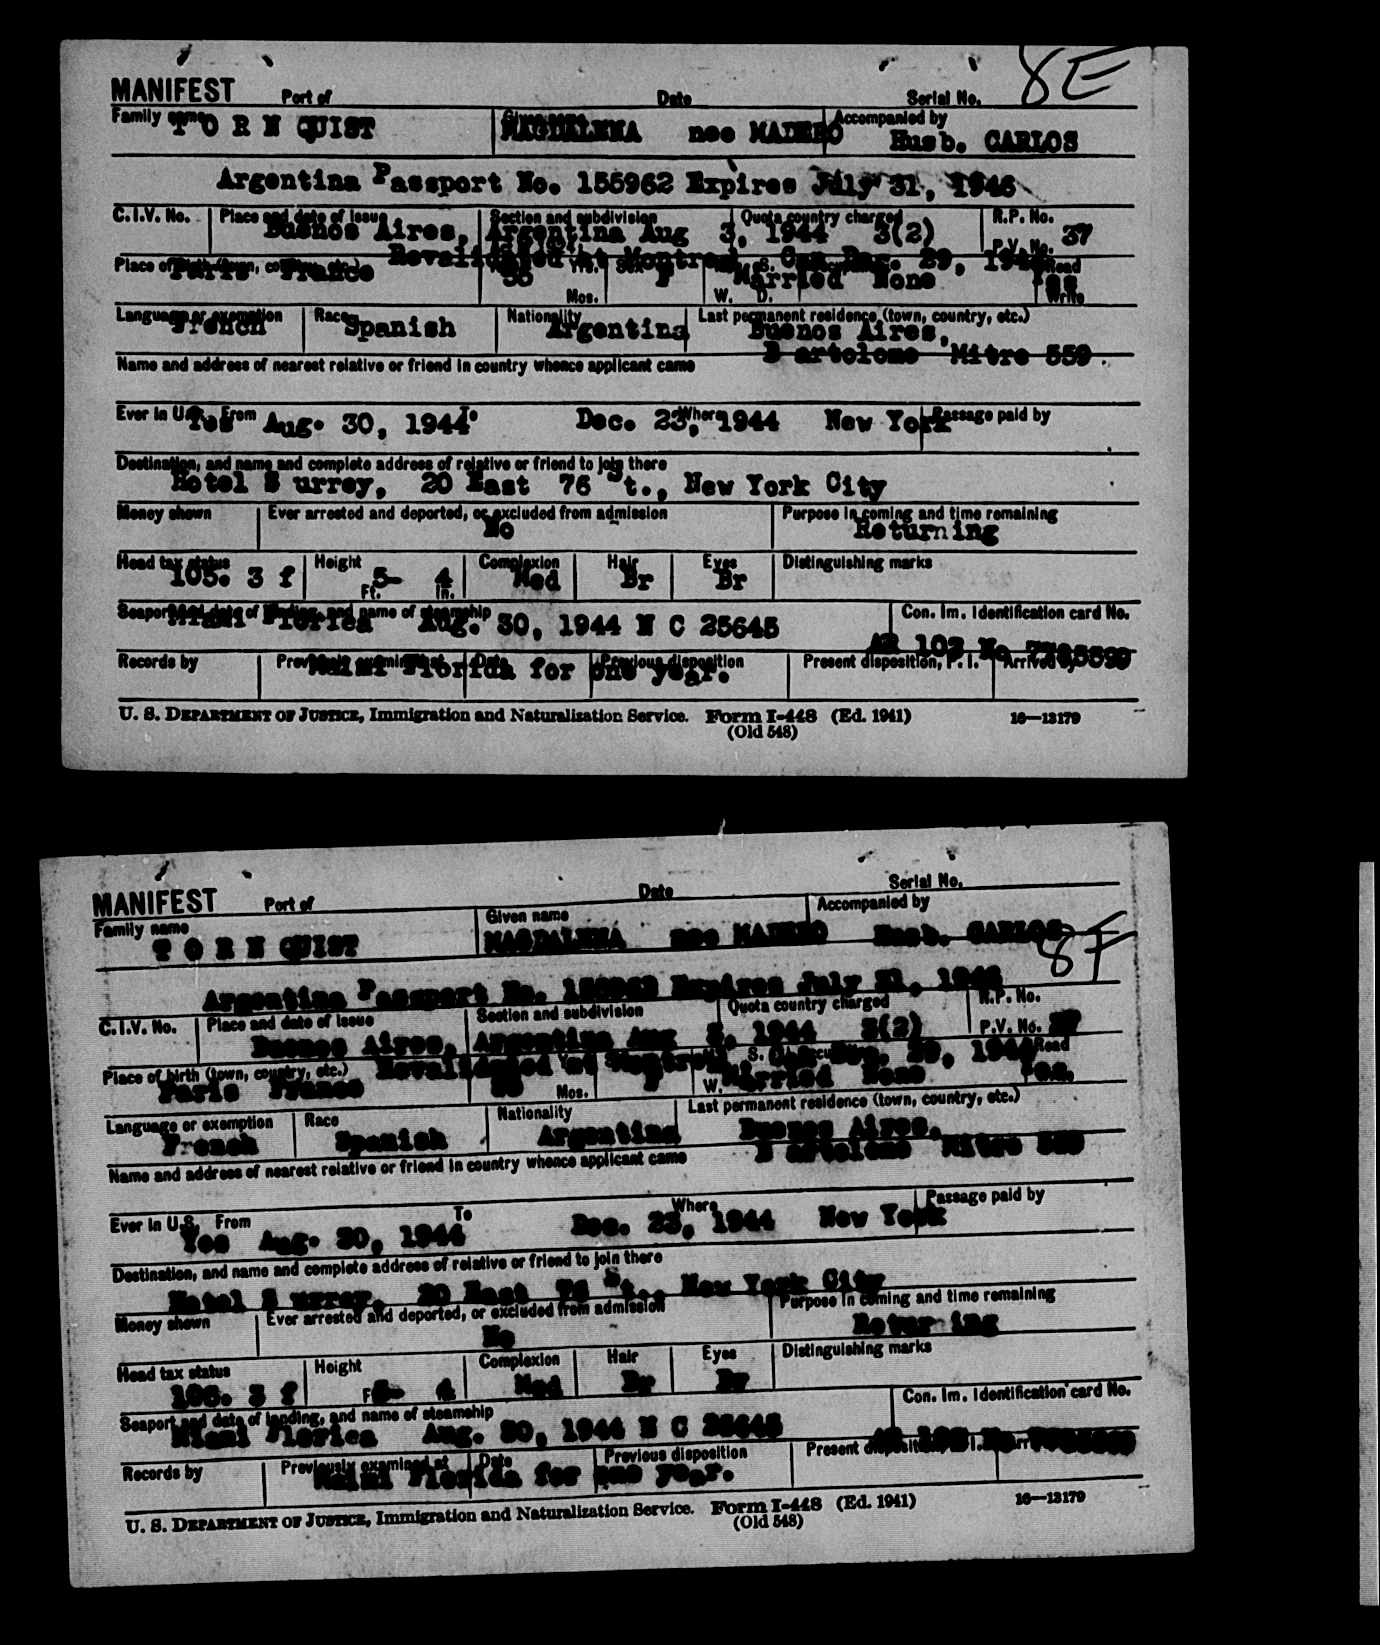 8E
MANIFEST Port of Date Serial No.
Family name Given name Accompanied by
T O R N QUIST MAGDALENA nee MADERO Husb. CARLOS
Argentina Passport No. 155962 Expires July 31, 1946
C.I.V. No. Place and date of issue Section and subdivision Quota country charged R.P. No.
Buenos Aires, Argentina Aug 3, 1944 3(2) P.V. No. 37
Revalidated at Montreal Can Dec. 29, 1944
Place of birth (town, country, etc.) Yrs. Sex S. Read
Paris France F Married None Yes
Mos. W. D. Write
Language or exemption Race Nationality Last permanent residence (town, country, etc.)
French Spanish Argentina Buenos Aires,
B artolome Mitre 559
Name and address of nearest relative or friend in country whence applicant came
Ever in U.S. From To Where Passage paid by
Yes Aug. 30, 1944 Dec. 23, 1944 New York
Destination, and name and complete address of relative or friend to join there
Hotel S urrey, 20 East 76 St., New York City
Money shown Ever arrested and deported, or excluded from admission Purpose in coming and time remaining
No Returning
Head tax status Height Complexion Hair Eyes Distinguishing marks
105. 3 f 5- 4 Med Br Br
Ft. In.
Seaport and date of landing, and name of steamship Con. Im. Identification card No.
Miami Florida Aug. 30, 1944 N C 25645
AR 103 No
Records by Previously examined at Date Previous disposition Present disposition, P. I. Arrived by
Miami Florida for one year.
U. S. DEPARTMENT OF JUSTICE, Immigration and Naturalization Service. Form I-448 (Ed. 1941) 16—13179
(Old 548)
MANIFEST Port of Date Serial No.
Family name Given name Accompanied by
T O R N QUIST MAGDALENA nee MADERO Husb. CARLOS
8F
Argentina Passport No. 155962 Expires July 31, 1946
C.I.V. No. Place and date of issue Section and subdivision Quota country charged R.P. No.
Buenos Aires, Argentina Aug 3, 1944 3(2) P.V. No. 37
Revalidated at Montreal Dec. 29, 1944 Read
Place of birth (town, country, etc.) Mos. S. W.
Paris France F Married None Yes.
Language or exemption Race Nationality Last permanent residence (town, country, etc.)
French Spanish Argentina Buenos Aires,
B artolome Mitre 559
Name and address of nearest relative or friend in country whence applicant came
Ever in U.S. From To Where Passage paid by
Yes Aug. 30, 1944 Dec. 23, 1944 New York
Destination, and name and complete address of relative or friend to join there
Hotel S urrey, 20 East 76 St., New York City
Money shown Ever arrested and deported, or excluded from admission Purpose in coming and time remaining
No Returning
Head tax status Height Complexion Hair Eyes Distinguishing marks
105. 3 f 5- 4 Med Br Br
Seaport and date of landing, and name of steamship Con. Im. Identification card No.
Miami Florida Aug. 30, 1944 N C 25645
Records by Previously examined at Date Previous disposition Present disposition
Miami Florida for one year.
U. S. DEPARTMENT OF JUSTICE, Immigration and Naturalization Service. Form I-448 (Ed. 1941) 16—13179
(Old 548)